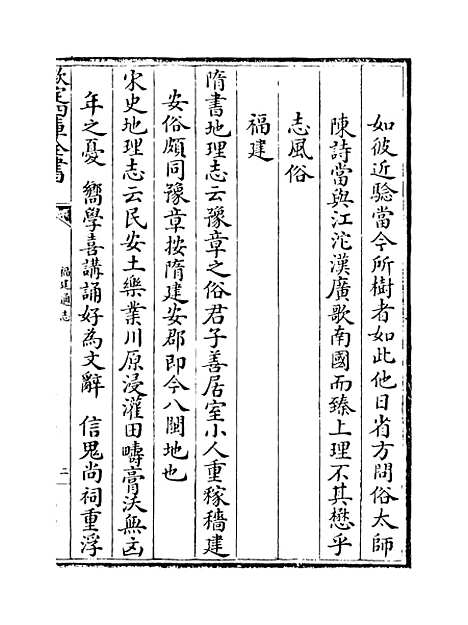 如彼近驗當今所樹者如此他日省方問俗太師
陳詩當與江沱漢廣歌南國而臻上理不其懋乎
志風俗
福建
隋書地理志云豫章之俗君子善居室小人重稼穡建
安俗頗同豫章按隋建安郡即今八閩地也
宋史地理志云民安土樂業川原浸灌田疇膏沃無凶
年之憂 嚮學喜講誦好為文辭 信鬼尚祠重浮
欽定四庫全書
福建通志
二